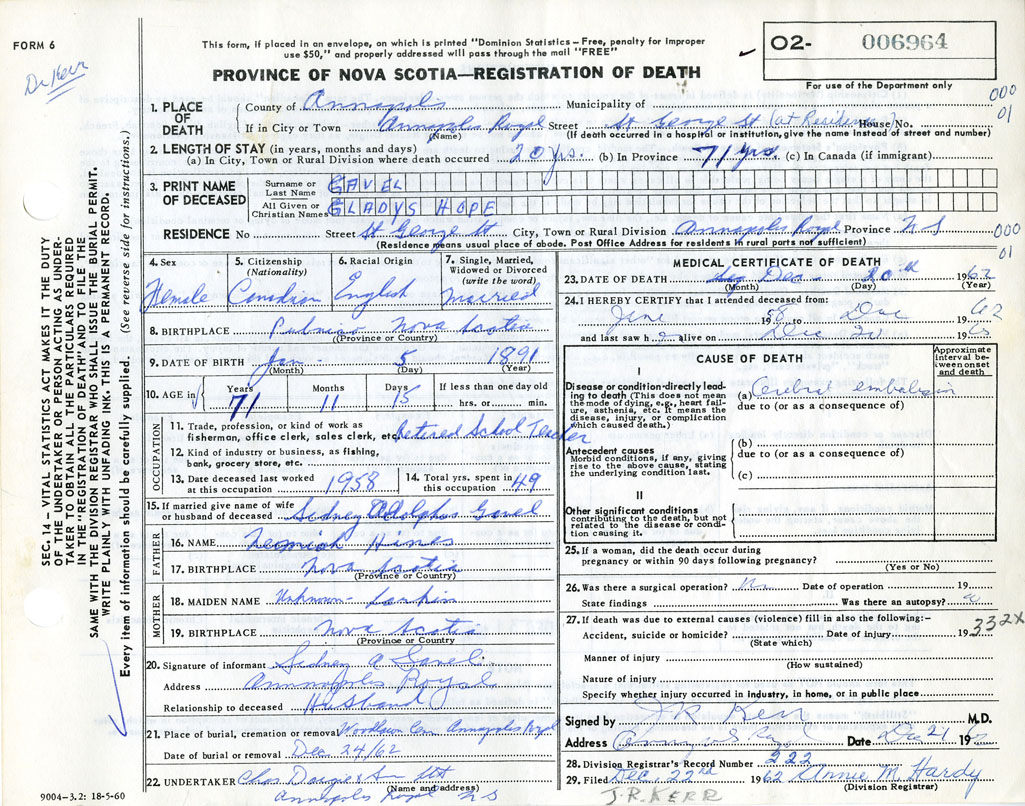 FORM 6
Dr Kerr
This form, if placed in an envelope, on which is printed "Dominion Statistics—Free, penalty for improper
use $50," and properly addressed will pass through the mail "FREE"
O2- 006964
For use of the Department only
PROVINCE OF NOVA SCOTIA—REGISTRATION OF DEATH
000
01
1. PLACE OF DEATH
County of Annapolis Municipality of
If in City or Town Annapolis Royal Street St George St (at Residence) House/No.
(Name) (If death occurred in a hospital or institution, give the name instead of street and number)
2. LENGTH OF STAY (in years, months and days)
(a) In City, Town or Rural Division where death occurred 20 yrs. (b) In Province 71 yrs (c) In Canada (if immigrant)
3. PRINT NAME OF DECEASED
Surname or Last Name GAVEL
All Given or Christian Names GLADYS HOPE
RESIDENCE No Street St George St City, Town or Rural Division Annapolis Royal Province N S
(Residence means usual place of abode. Post Office Address for residents in rural parts not sufficient)
000
01
SEC. 14 – VITAL STATISTICS ACT MAKES IT THE DUTY
OF THE UNDERTAKER OR PERSON ACTING AS UNDER-
TAKER TO OBTAIN ALL THE PARTICULARS REQUIRED
IN THE "REGISTRATION OF DEATH" AND TO FILE THE
SAME WITH THE DIVISION REGISTRAR WHO SHALL ISSUE THE BURIAL PERMIT.
WRITE PLAINLY WITH UNFADING INK. THIS IS A PERMANENT RECORD.
Every item of information should be carefully supplied. (See reverse side for instructions.)
4. Sex
Female
5. Citizenship
(Nationality)
Canadian
6. Racial Origin
English
7. Single, Married,
Widowed or Divorced
(write the word)
Married
8. BIRTHPLACE Nova Scotia
(Province or Country)
9. DATE OF BIRTH Jan- 5 1891
(Month) (Day) (Year)
10. AGE in
Years 71
Months 11
Days 15
If less than one day old
hrs. or min.
OCCUPATION
11. Trade, profession, or kind of work as
fisherman, office clerk, sales clerk, etc. Retired School Teacher
12. Kind of industry or business, as fishing,
bank, grocery store, etc.
13. Date deceased last worked
at this occupation 1958
14. Total yrs. spent in
this occupation 49
15. If married give name of wife
or husband of deceased Sidney Adolphus Gavel
FATHER
16. NAME Hines
17. BIRTHPLACE Nova Scotia
(Province or Country)
MOTHER
18. MAIDEN NAME Unknown- Larkin
19. BIRTHPLACE Nova Scotia
(Province or Country)
20. Signature of informant Sidney A Gavel.
Address Annapolis Royal
Relationship to deceased Husband
21. Place of burial, cremation or removal Woodlawn Cem Annapolis Royal
Date of burial or removal Dec 24/62
22. UNDERTAKER
(Name and address)
Annapolis Royal N S
9004-3.2: 18-5-60
MEDICAL CERTIFICATE OF DEATH
23. DATE OF DEATH Dec 20th 1962
(Month) (Day) (Year)
24. I HEREBY CERTIFY that I attended deceased from:
June 1958 to Dec 62
and last saw her alive on Dec 20 19
CAUSE OF DEATH
Approximate
interval be-
tween onset
and death
I
Disease or condition directly lead-
ing to death (This does not mean
the mode of dying, e.g., heart fail-
ure, asthenia, etc. It means the
disease, injury, or complication
which caused death.)
(a) Cerebral embolism
due to (or as a consequence of)
(b)
due to (or as a consequence of)
(c)
Antecedent causes
Morbid conditions, if any, giving
rise to the above cause, stating
the underlying condition last.
II
Other significant conditions
contributing to the death, but not
related to the disease or condi-
tion causing it.
25. If a woman, did the death occur during
pregnancy or within 90 days following pregnancy?
(Yes or No)
26. Was there a surgical operation? No Date of operation 19
State findings Was there an autopsy?
27. If death was due to external causes (violence) fill in also the following:–
Accident, suicide or homicide? Date of injury 19
(State which)
332X
Manner of injury
(How sustained)
Nature of injury
Specify whether injury occurred in industry, in home, or in public place
Signed by J R Kerr M.D.
Address Annapolis Royal Date Dec 21 19
28. Division Registrar's Record Number 222
29. Filed Dec. 22nd 1962 Annie M Hardy
(Division Registrar)
J.R. KERR